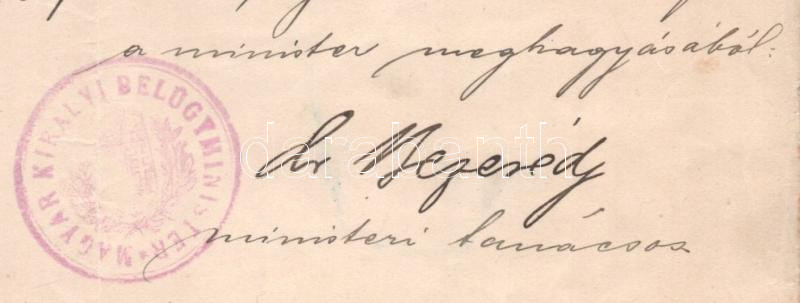 a minister meghagyásából:
MAGYAR KIRÁLYI BELÜGYMINISTER
Dr Bezerédj
darabanth.com
ministeri tanácsos